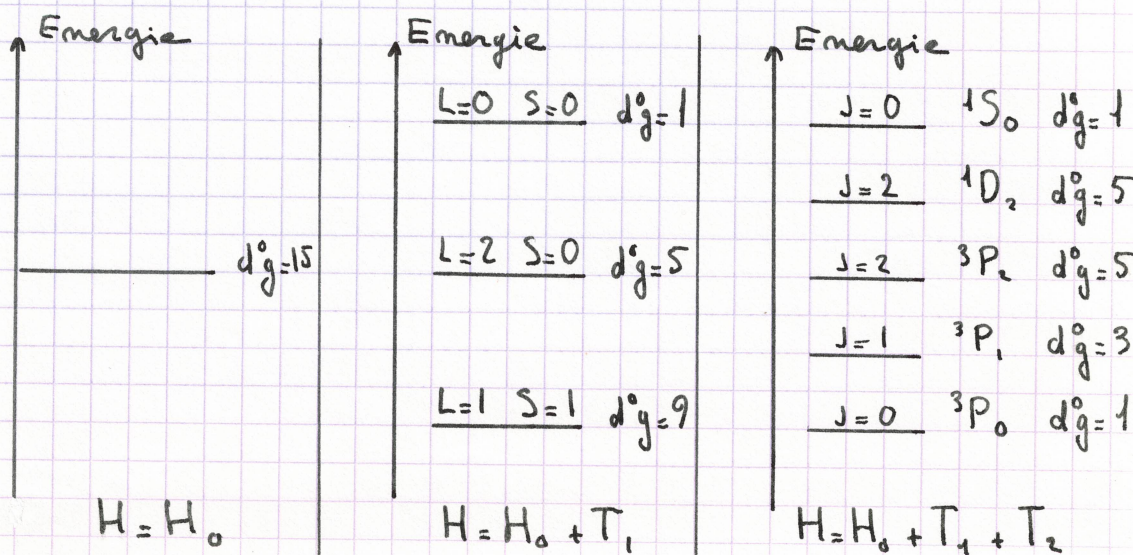 Energie
d°g=15
H = H₀
Energie
L=0 S=0 d°g=1
L=2 S=0 d°g=5
L=1 S=1 d°g=9
H = H₀ + T₁
Energie
J=0 ¹S₀ d°g=1
J=2 ¹D₂ d°g=5
J=2 ³P₂ d°g=5
J=1 ³P₁ d°g=3
J=0 ³P₀ d°g=1
H=H₀+T₁+T₂